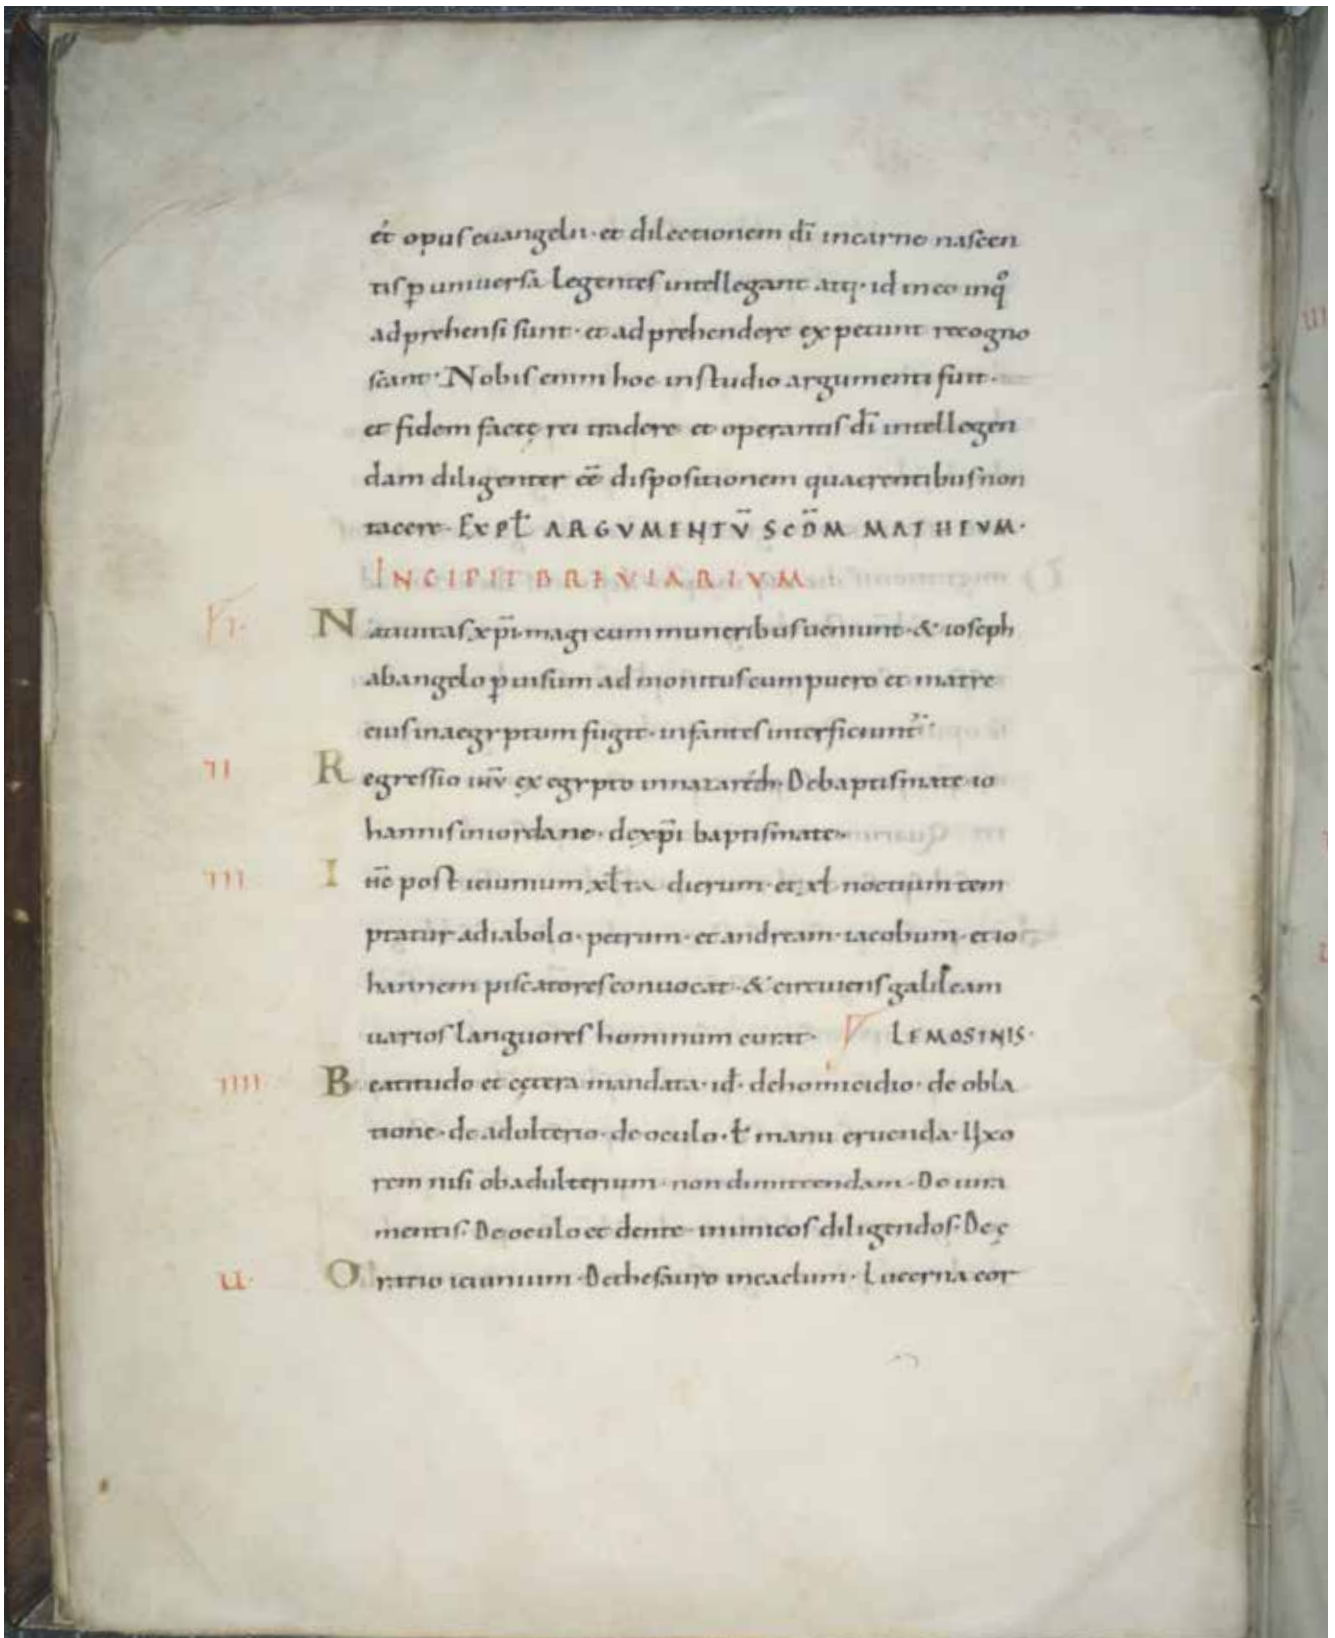 et opus euangelii· et dilectionem dī in carne nascen
tis p̄ uniuersa legentes intellegant atq· id in eo in qͦ
adprehensi sunt· et adprehendere expetunt recogno
scant· Nobis enim hoc in studio argumenti fuit·
et fidem factę rei tradere et operantis dī intellegen
dam diligenter eē dispositionem quaerentibus non
tacere· Expɫ ARGVMENTV̄ SCD̄M MATHEVM·
INCIPIT BREVIARIVM
I· Natiuitas xp̄i· magi cum muneribus ueniunt· & ioseph
ab angelo p̄ uisum admonitus cum puero et matre
eius in aegyptum fugit· infantes interficiunt᷑·
II Regressio ihū ex egypto in nazareth· De baptismate io
hannis in iordane· de xp̄i baptismate·
III Ihc̄ post ieiunium xɫta dierum· et xɫ noctium tem
ptatur a diabolo· petrum· et andream· iacobum· et io
hannem piscatores conuocat· & circuiens galileam
uarios languores hominum curat· LEMOSINIS·
IIII Beatitudo et cętera mandata· id· de homicidio· de obla
tione· de adulterio· de oculo· ɫ manu eruenda· Uxo
rem nisi ob adulterium· non dimittendam· De iura
mentis· De oculo et dente· inimicos diligendos· De ę
u· Oratio ieiunium· De thesauro in caelum· Lucerna cor